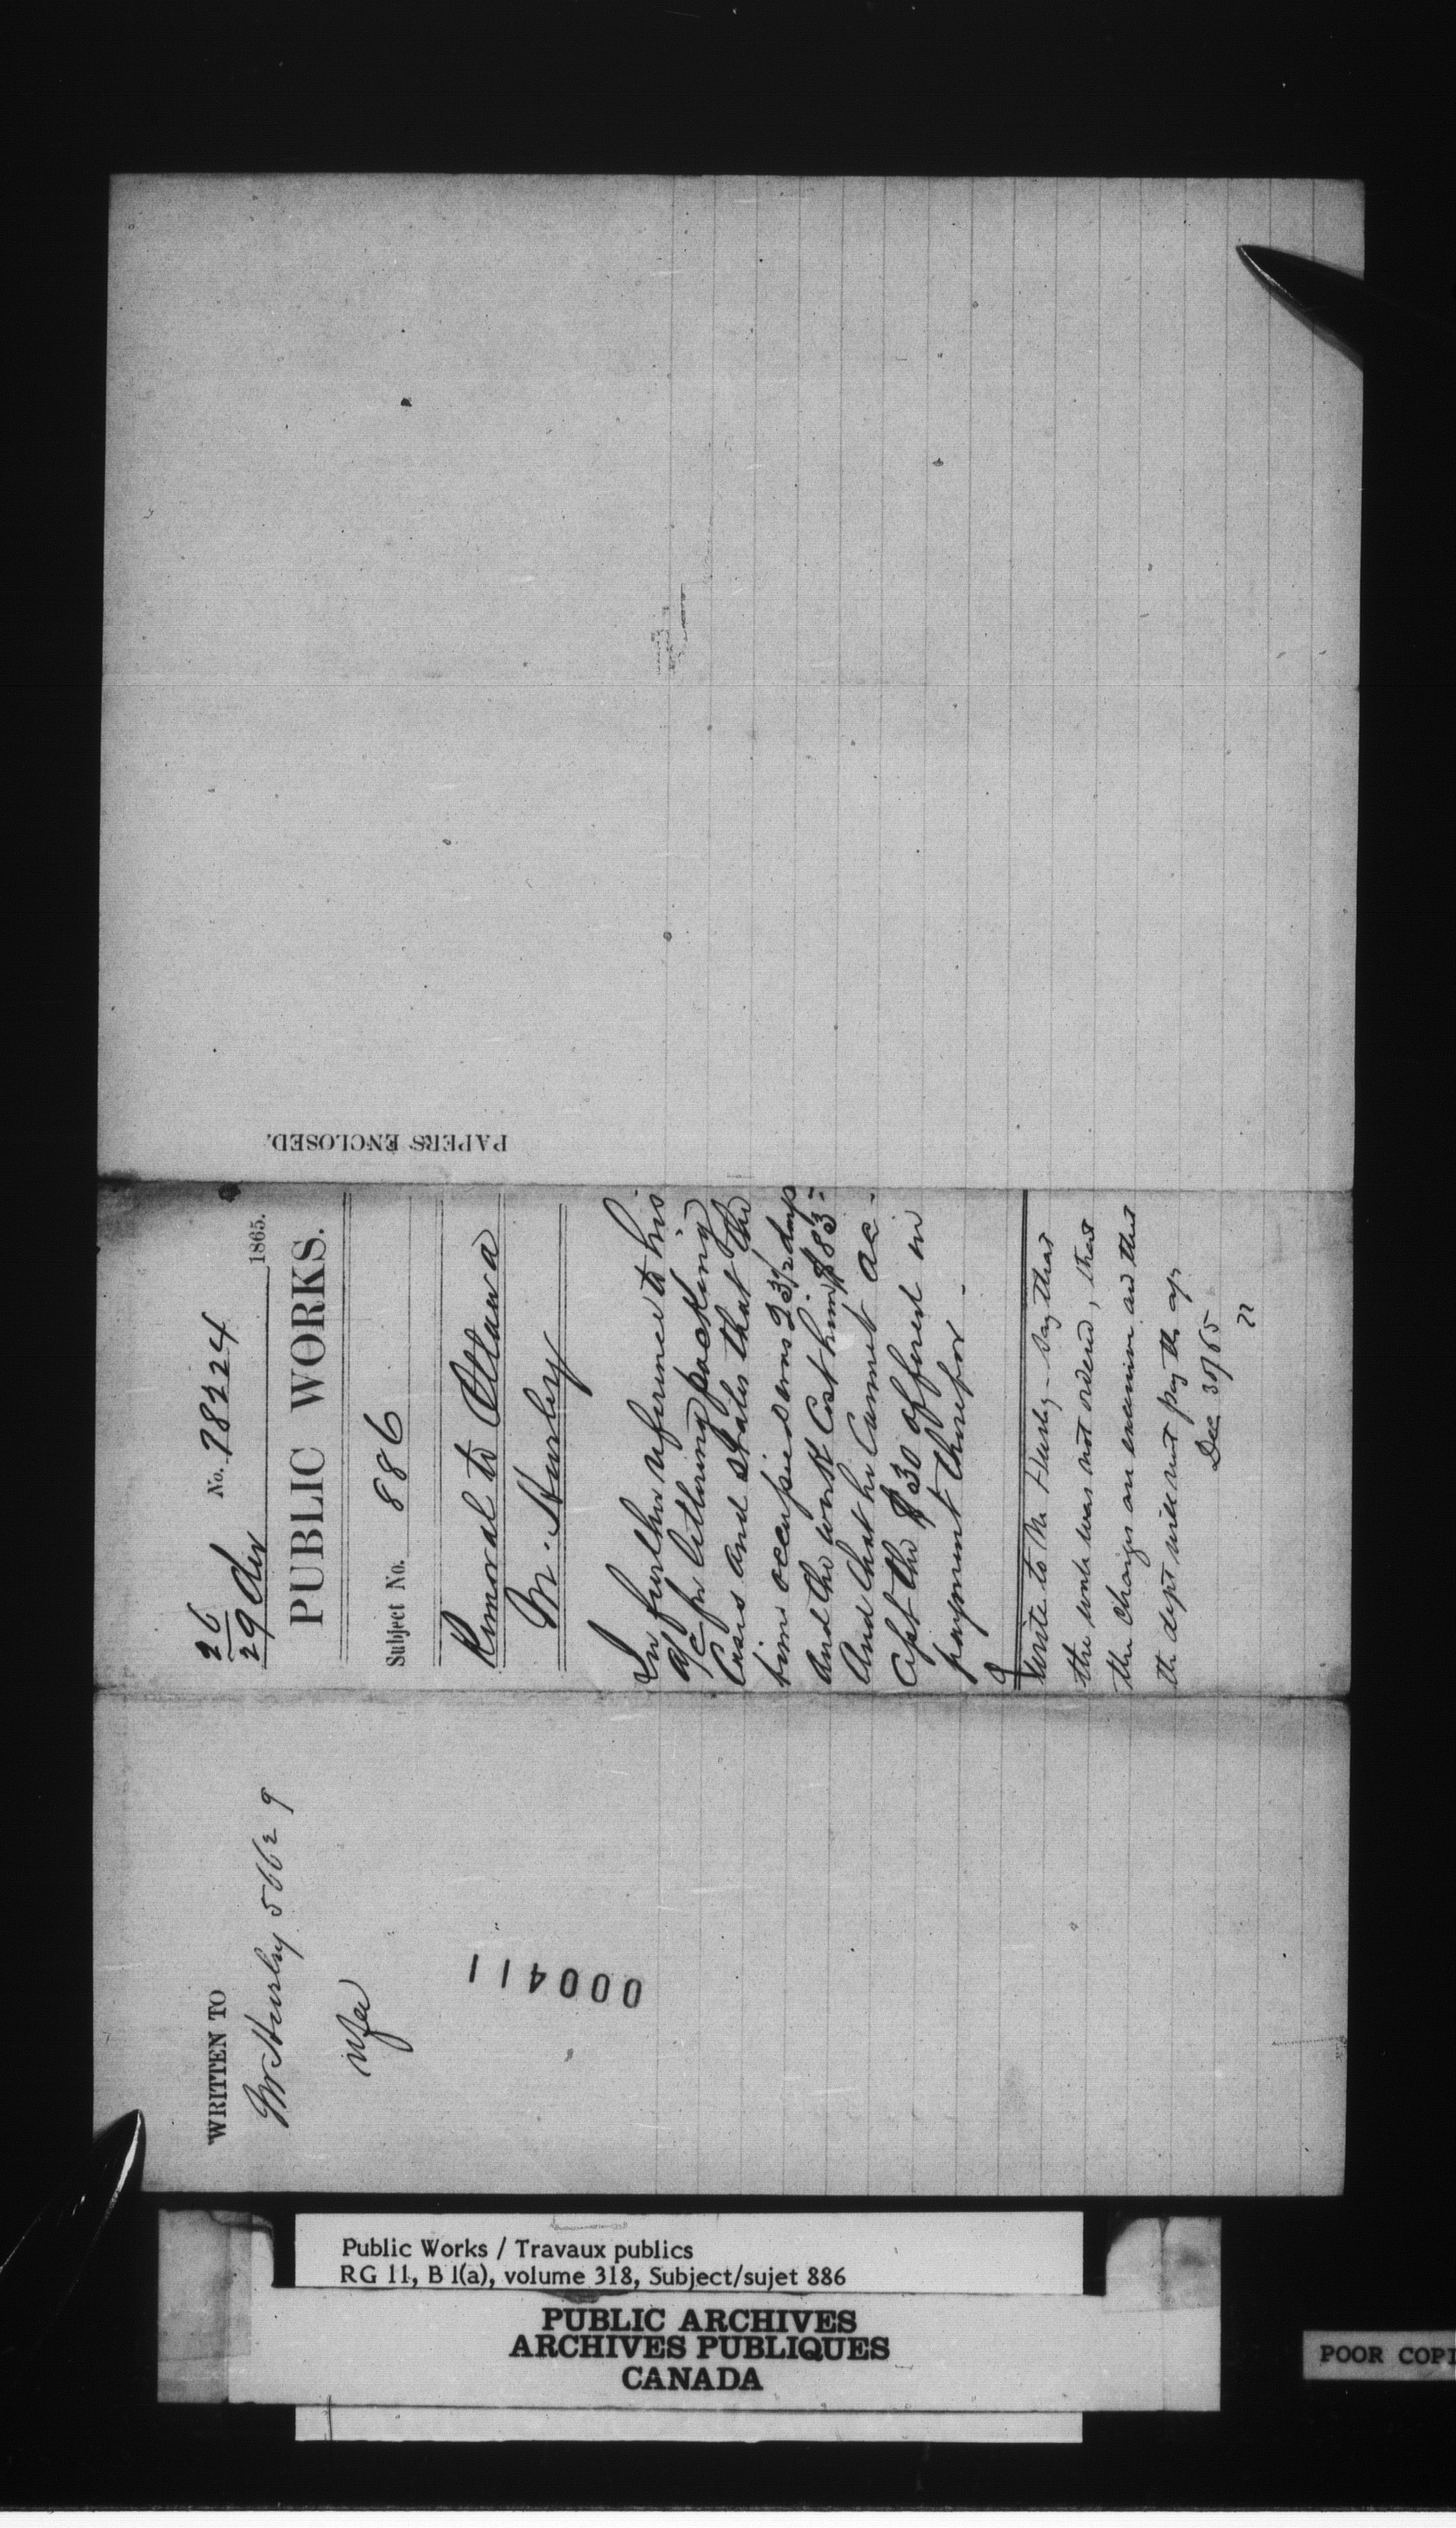 26
29 Dec No. 78224 1865.
PUBLIC WORKS.
Subject No. 886
Removal to Ottawa
M. Hurley
In further reference to his
a/c for lettering packing
Cases and states that the
time occupied was 23½ days
and the work cost him $83-
and that he cannot ac-
cept the $30 offered in
payment therefor -
Write to Mr Hurley - say that
the work was not ordered, that
the charges are excessive and that
the dept will not pay the a/c
Dec 30/65
PAPERS ENCLOSED.
WRITTEN TO
M Hurley 56629
000411
Public Works / Travaux publics
RG 11, B 1(a), volume 318, Subject/sujet 886
PUBLIC ARCHIVES
ARCHIVES PUBLIQUES
CANADA
POOR COPI